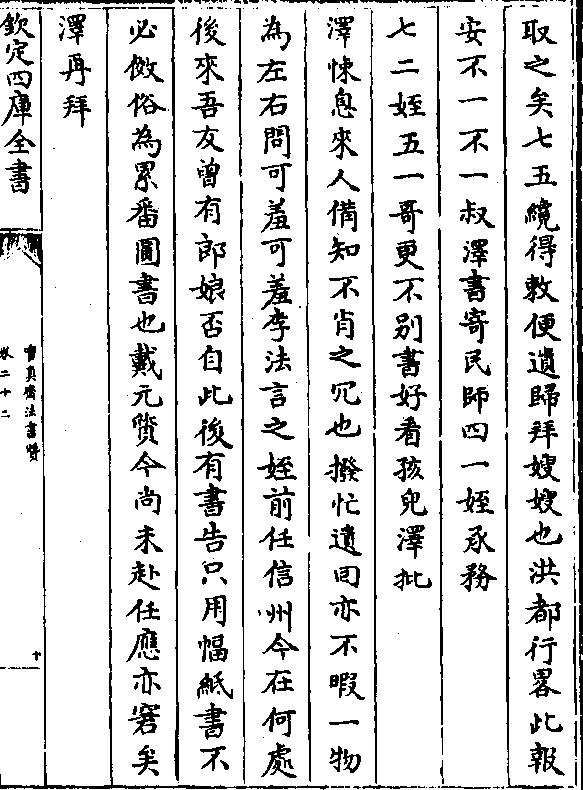 取之矣七五纔得敕便遺歸拜嫂嫂也洪都行畧此報
安不一不一叔澤書寄民師四一姪承務
七二姪五一哥更不別書好看孩兒澤批
澤悚息來人備知不肖之冗也撥忙遺囘亦不暇一物
為左右問可羞可羞李法言之姪前任信州今在何處
後來吾友曾有郎娘否自此後有書告只用幅紙書不
必倣俗為累番圓書也戴元質今尚未赴任應亦窘矣
澤再拜
欽定四庫全書
寶真齋法書贊
卷二十二
十